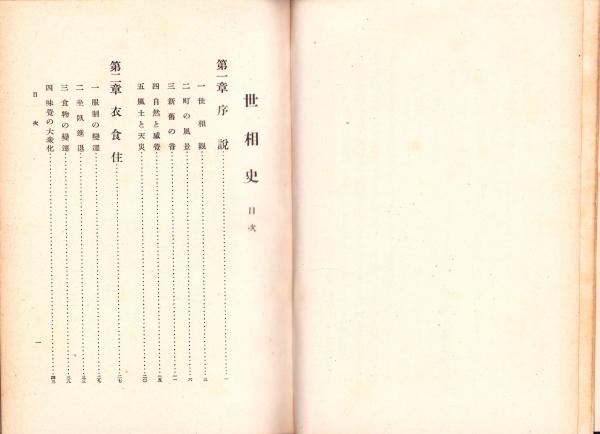 世相史 目次
第一章 序説……一
一 世相觀……二
二 町の風景……六
三 新舊の音……一一
四 自然と感覺……一五
五 風土と天災……二〇
第二章 衣食住……二七
一 服制の變遷……二九
二 坐臥進退……三三
三 食物の變遷……三八
四 味覺の大衆化……四三
目次
一